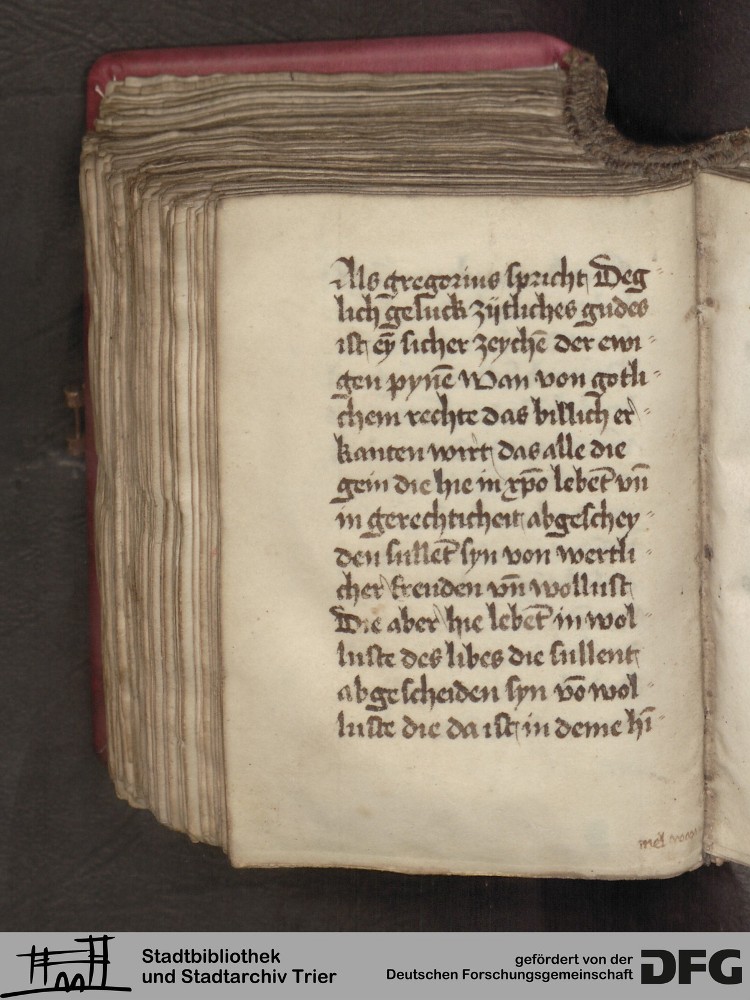 Als gregorius spricht Deg
lich gesuck zijtliches gudes
ist eȳ sicher zeychē der ewi⸗
gen pynē Wan von gotli⸗
chem rechte das billich er⸗
kanten wirt das alle die
gein die hie in xp̄o lebēt vn̄
in gerechticheit abgeschey⸗
den sullēt syn von wertli⸗
cher freuden vn̄ wollust
Die aber hie lebēt in wol⸗
luste des libes die sullent
abgescheiden syn vō wol⸗
luste die da ist in deme hī⸗
mel
Stadtbibliothek
und Stadtarchiv Trier
gefördert von der
Deutschen Forschungsgemeinschaft
DFG